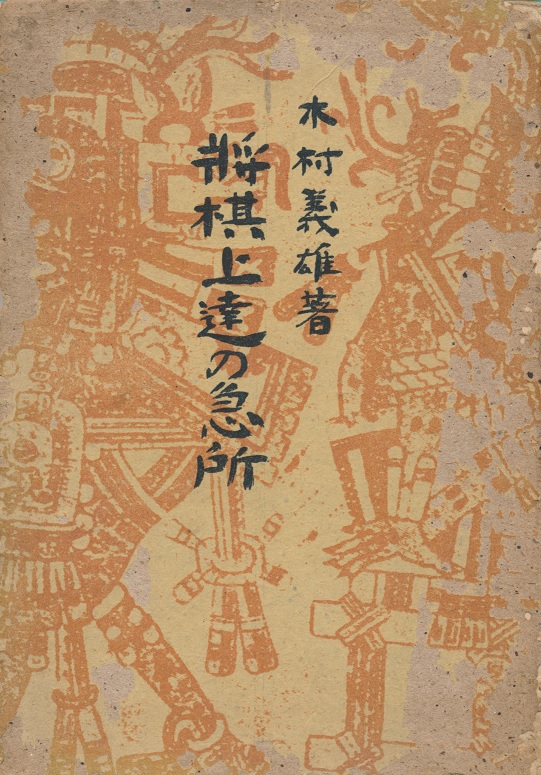 木村義雄著
将棋上達の急所